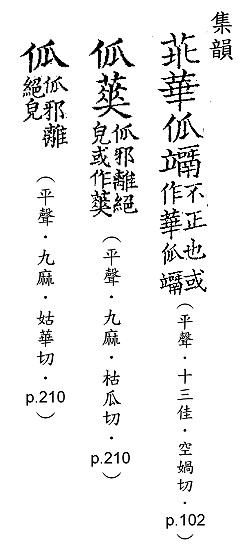 集韻
華竵不正也或作華竵（平聲．十三佳．空媧切．p.102）
邪離絕皃或作（平聲．九麻．枯瓜切．p.210）
邪離絕皃（平聲．九麻．姑華切．p.210）